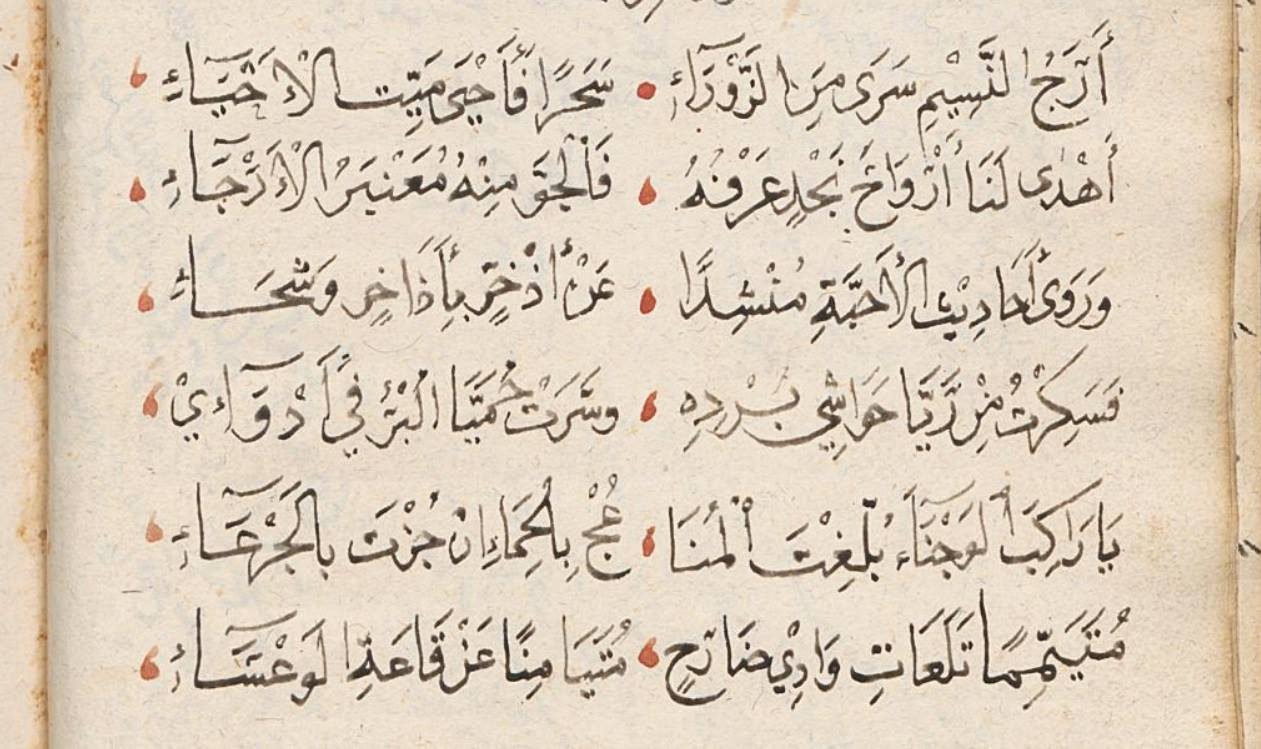 أَرَجُ النَّسِيْمِ سَرَى مِنَ الزَّوْرَآءِ • سَحَرًا فَأَحْيَى مَيِّتَ الْأَحْيَآءِ
أَهْدَى لَنَا أَرْوَاحَ نَجْدٍ عَرْفُهُ • فَالْجَوُّ مِنْهُ مُعَنْبَرُ الْأَرْجَآءِ
وَرَوَى أَحَادِيْثَ الْأَحِبَّةِ مُنْشِدًا • عَنْ أَذْخِرٍ بِأَذَاخِرٍ وَسَحَاءِ
فَسَكِرْتُ مِنْ رَيَّا حَوَاشِي بُرْدِهِ • وسَرَتْ حُمَيَّا الْبُرْءِ فِي أَدْوَآءِيْ
يَا رَاكِبَ الْوَجْنَآءِ بُلِّغْتَ الْمُنَا • عُجْ بِالْحِمَاءِ اِنْ جُزْتَ بِالْجَرْعَآءِ
مُتَيَمِّمًا تَلَعَاتِ وَادِيْ ضَارِجٍ • مُتَيَامِنًا عَنْ قَاعَةِ الْوَعْسَآءِ